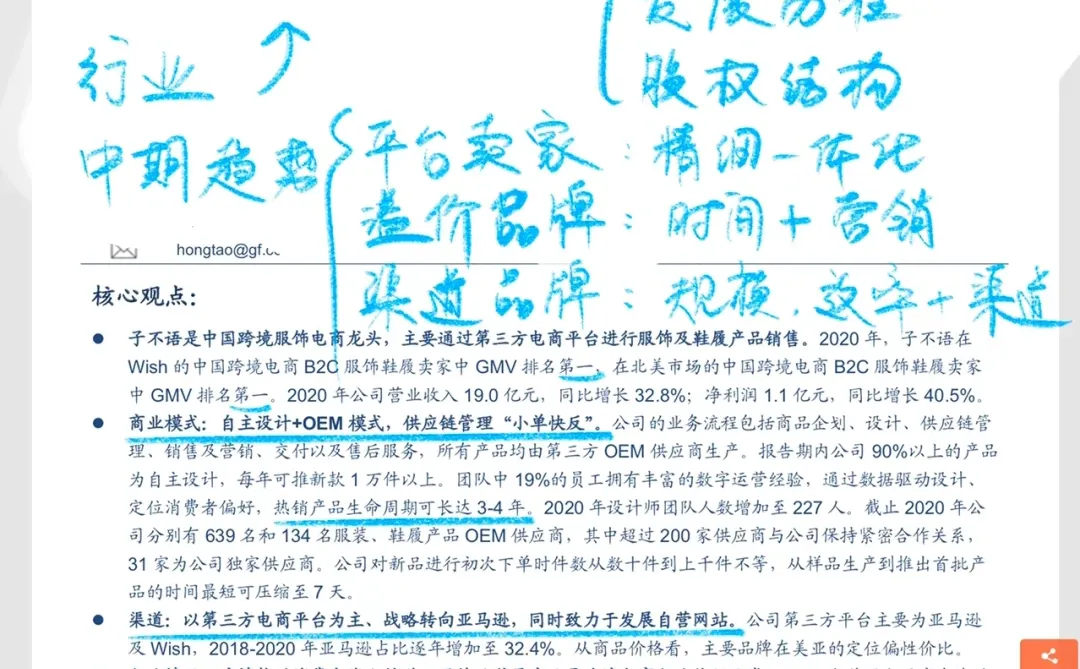 发展历程
行业
股权结构
中期趋势
平台卖家：精细一体化
溢价品牌：时间+营销
hongtao@gf.c
渠道品牌：规模、效率+渠道
核心观点：
● 子不语是中国跨境服饰电商龙头，主要通过第三方电商平台进行服饰及鞋履产品销售。2020 年，子不语在
Wish 的中国跨境电商 B2C 服饰鞋履卖家中 GMV 排名第一，在北美市场的中国跨境电商 B2C 服饰鞋履卖家
中 GMV 排名第一。2020 年公司营业收入 19.0 亿元，同比增长 32.8%；净利润 1.1 亿元，同比增长 40.5%。
● 商业模式：自主设计+OEM 模式，供应链管理“小单快反”。公司的业务流程包括商品企划、设计、供应链管
理、销售及营销、交付以及售后服务，所有产品均由第三方 OEM 供应商生产。报告期内公司 90%以上的产品
为自主设计，每年可推新款 1 万件以上。团队中 19%的员工拥有丰富的数字运营经验，通过数据驱动设计、
定位消费者偏好，热销产品生命周期可长达 3-4 年。2020 年设计师团队人数增加至 227 人。截止 2020 年公
司分别有 639 名和 134 名服装、鞋履产品 OEM 供应商，其中超过 200 家供应商与公司保持紧密合作关系，
31 家为公司独家供应商。公司对新品进行初次下单时件数从数十件到上千件不等，从样品生产到推出首批产
品的时间最短可压缩至 7 天。
● 渠道：以第三方电商平台为主、战略转向亚马逊，同时致力于发展自营网站。公司第三方平台主要为亚马逊
及 Wish，2018-2020 年亚马逊占比逐年增加至 32.4%。从商品价格看，主要品牌在美亚的定位偏性价比。